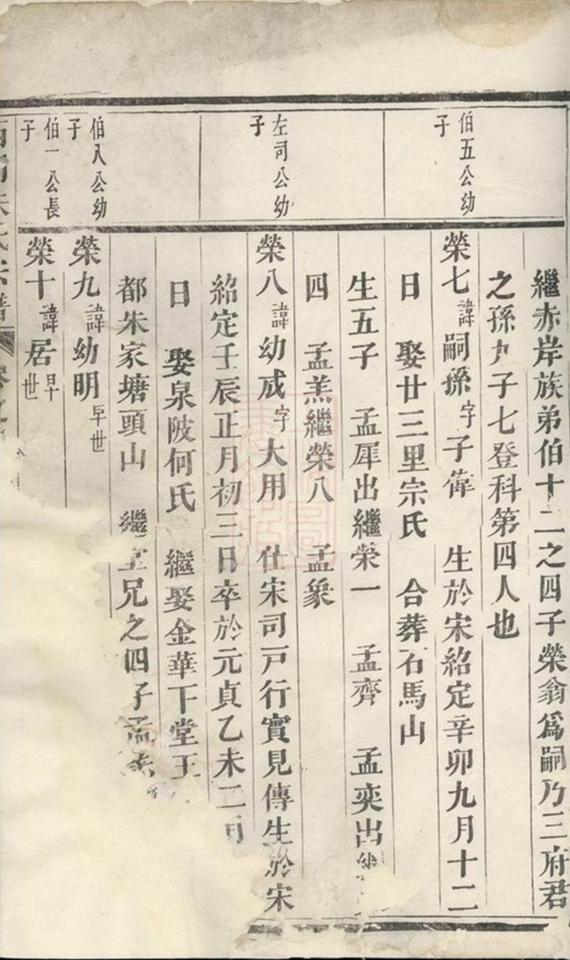 繼赤岸族弟伯十二之四子榮翁爲嗣乃三府君
之孫九子七登科第四人也
伯五公幼子
榮七諱嗣孫字子偉 生於宋紹定辛卯九月十二
日 娶廿三里宗氏 合葬石馬山
生五子 孟犀出繼榮一 孟齊 孟奕出繼
四 孟羔繼榮八 孟象
左司公幼子
榮八諱幼成字大用 仕宋司戸行實見傳生於宋
紹定壬辰正月初三日卒於元貞乙未二月
日 娶泉陂何氏 繼娶金華下堂王
都朱家塘頭山 繼堂兄之四子孟
伯八公幼子
榮九諱幼明早世
伯一公長子
榮十諱居早世
氏宗譜